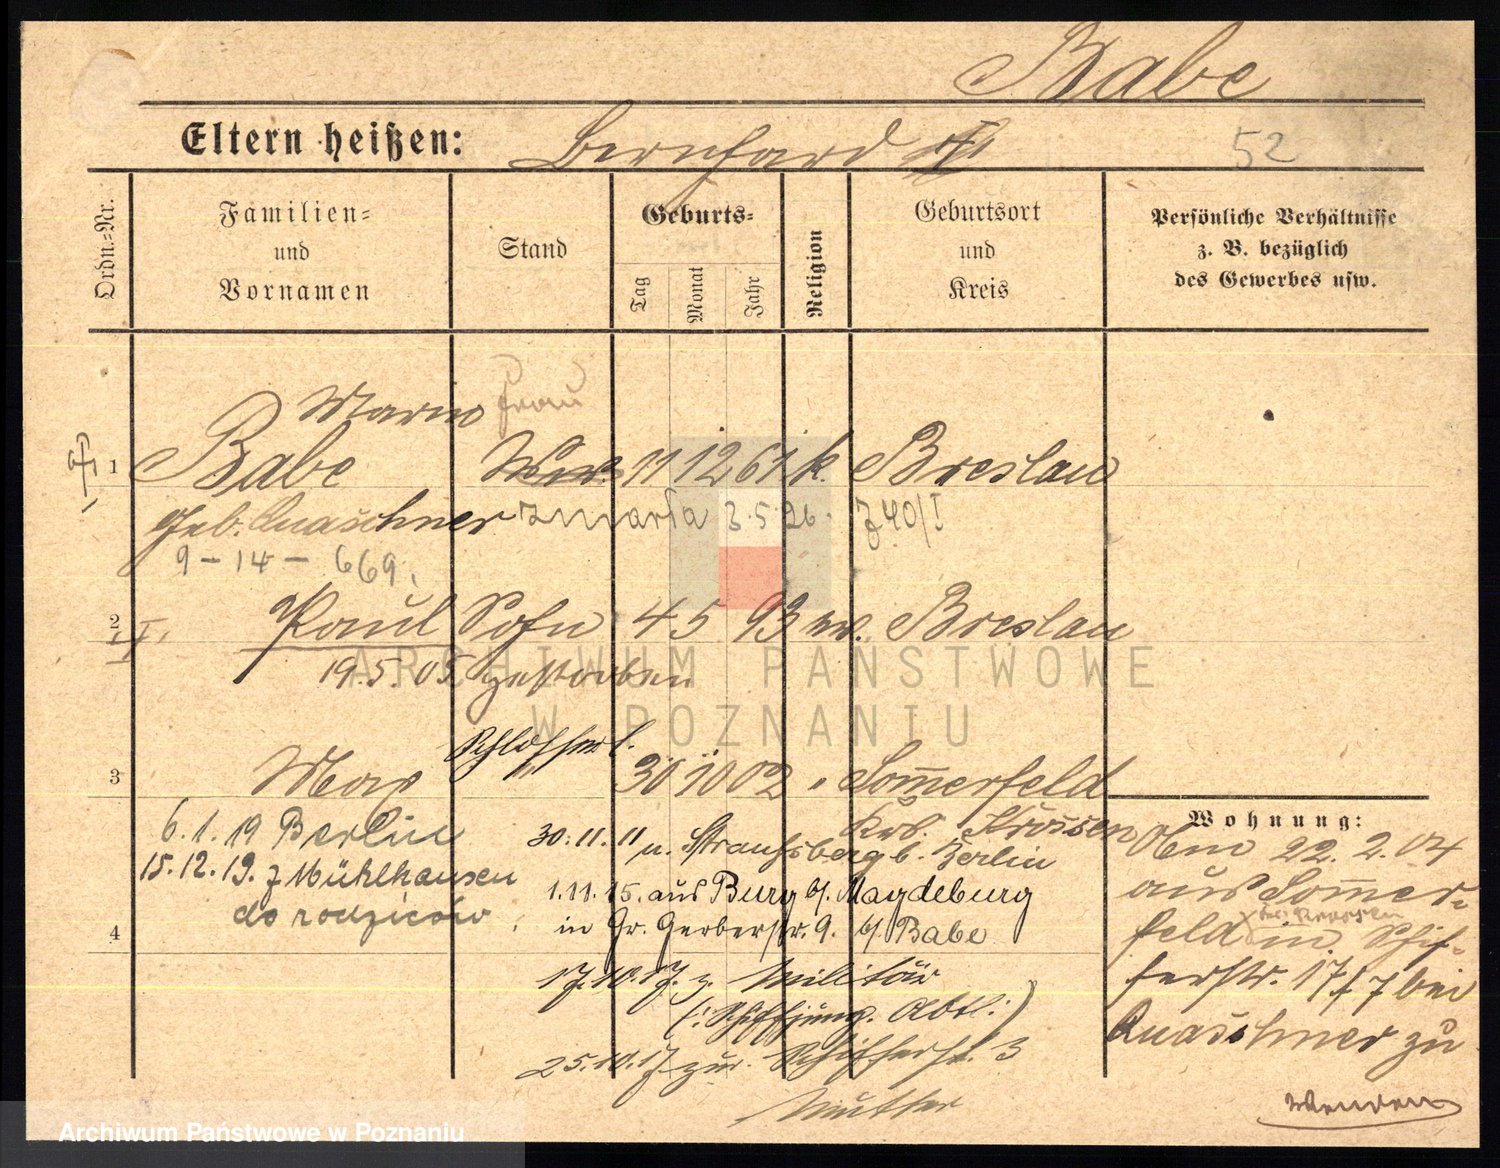 Babe
Eltern heißen: Bernhard
52
Ordn.-Nr.
Familien- und Vornamen
Stand
Geburts-
Tag
Monat
Jahr
Religion
Geburtsort und Kreis
Persönliche Verhältnisse z. B. bezüglich des Gewerbes usw.
Maria Frau
1 Babe Ww. 11 12 61 k. Breslau
geb. Quaschner zmarła 3.5.26. 740/I
9-14-669.
2 Paul Sohn 4 5 93 ev. Breslau
I.
19.5.05 gestorben
Schlosserl.
3 Max 30 10 02 " Som̅erfeld
Krs. Krossen
6.1.19 Berlin
30.11.11 n. Strausberg b. Berlin
15.12.19. z Mühlhausen
do rodziców
1.11.15. aus Burg b/. Magdeburg
4 in Gr. Gerberstr. 9. b/. Babe
17.10.17. z. Militär
(: Schiffjung. Abtl. :)
25.10.17 zur. Schifferst. 3
Mutter
Wohnung:
22.2.04
aus Som̅er-
feld in Schif-
ferstr. 17 bei
Quaschner zu
Wenden
ARCHIWUM PAŃSTWOWE
W POZNANIU
Archiwum Państwowe w Poznaniu